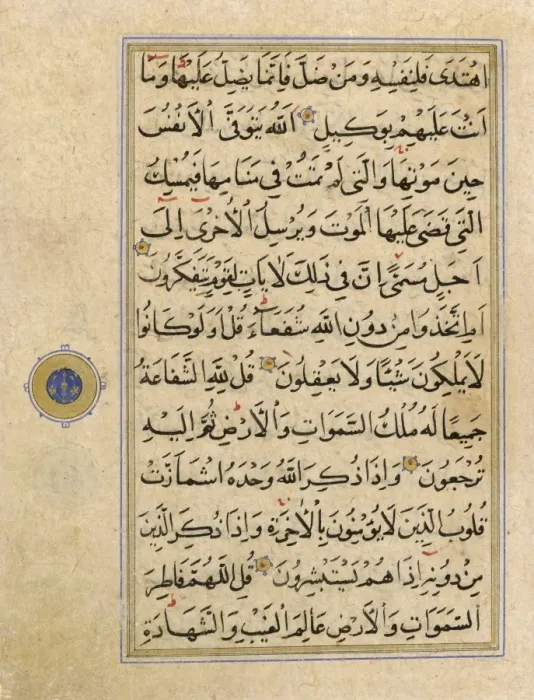 اهْتَدَىٰ فَلِنَفْسِهِ وَمَنْ ضَلَّ فَاِنَّمَا يَضِلُّ عَلَيْهَا وَمَا
اَنْتَ عَلَيْهِمْ بِوَكِيلٍ اَللّٰهُ يَتَوَفَّى الْاَنْفُسَ
حِينَ مَوْتِهَا وَالَّتِي لَمْ تَمُتْ فِي مَنَامِهَا فَيُمْسِكُ
الَّتِي قَضَىٰ عَلَيْهَا الْمَوْتَ وَيُرْسِلُ الْاُخْرَىٰ اِلَىٰ
اَجَلٍ مُسَمًّى اِنَّ فِي ذٰلِكَ لَاٰيَاتٍ لِقَوْمٍ يَتَفَكَّرُونَ
اَمِ اتَّخَذُوا مِنْ دُونِ اللّٰهِ شُفَعَاءَ قُلْ اَوَلَوْ كَانُوا
لَا يَمْلِكُونَ شَيْئًا وَلَا يَعْقِلُونَ قُلْ لِلّٰهِ الشَّفَاعَةُ
جَمِيعًا لَهُ مُلْكُ السَّمٰوَاتِ وَالْاَرْضِ ثُمَّ اِلَيْهِ
تُرْجَعُونَ وَاِذَا ذُكِرَ اللّٰهُ وَحْدَهُ اشْمَاَزَّتْ
قُلُوبُ الَّذِينَ لَا يُؤْمِنُونَ بِالْاٰخِرَةِ وَاِذَا ذُكِرَ الَّذِينَ
مِنْ دُونِهِ اِذَا هُمْ يَسْتَبْشِرُونَ قُلِ اللّٰهُمَّ فَاطِرَ
السَّمٰوَاتِ وَالْاَرْضِ عَالِمَ الْغَيْبِ وَالشَّهَادَةِ